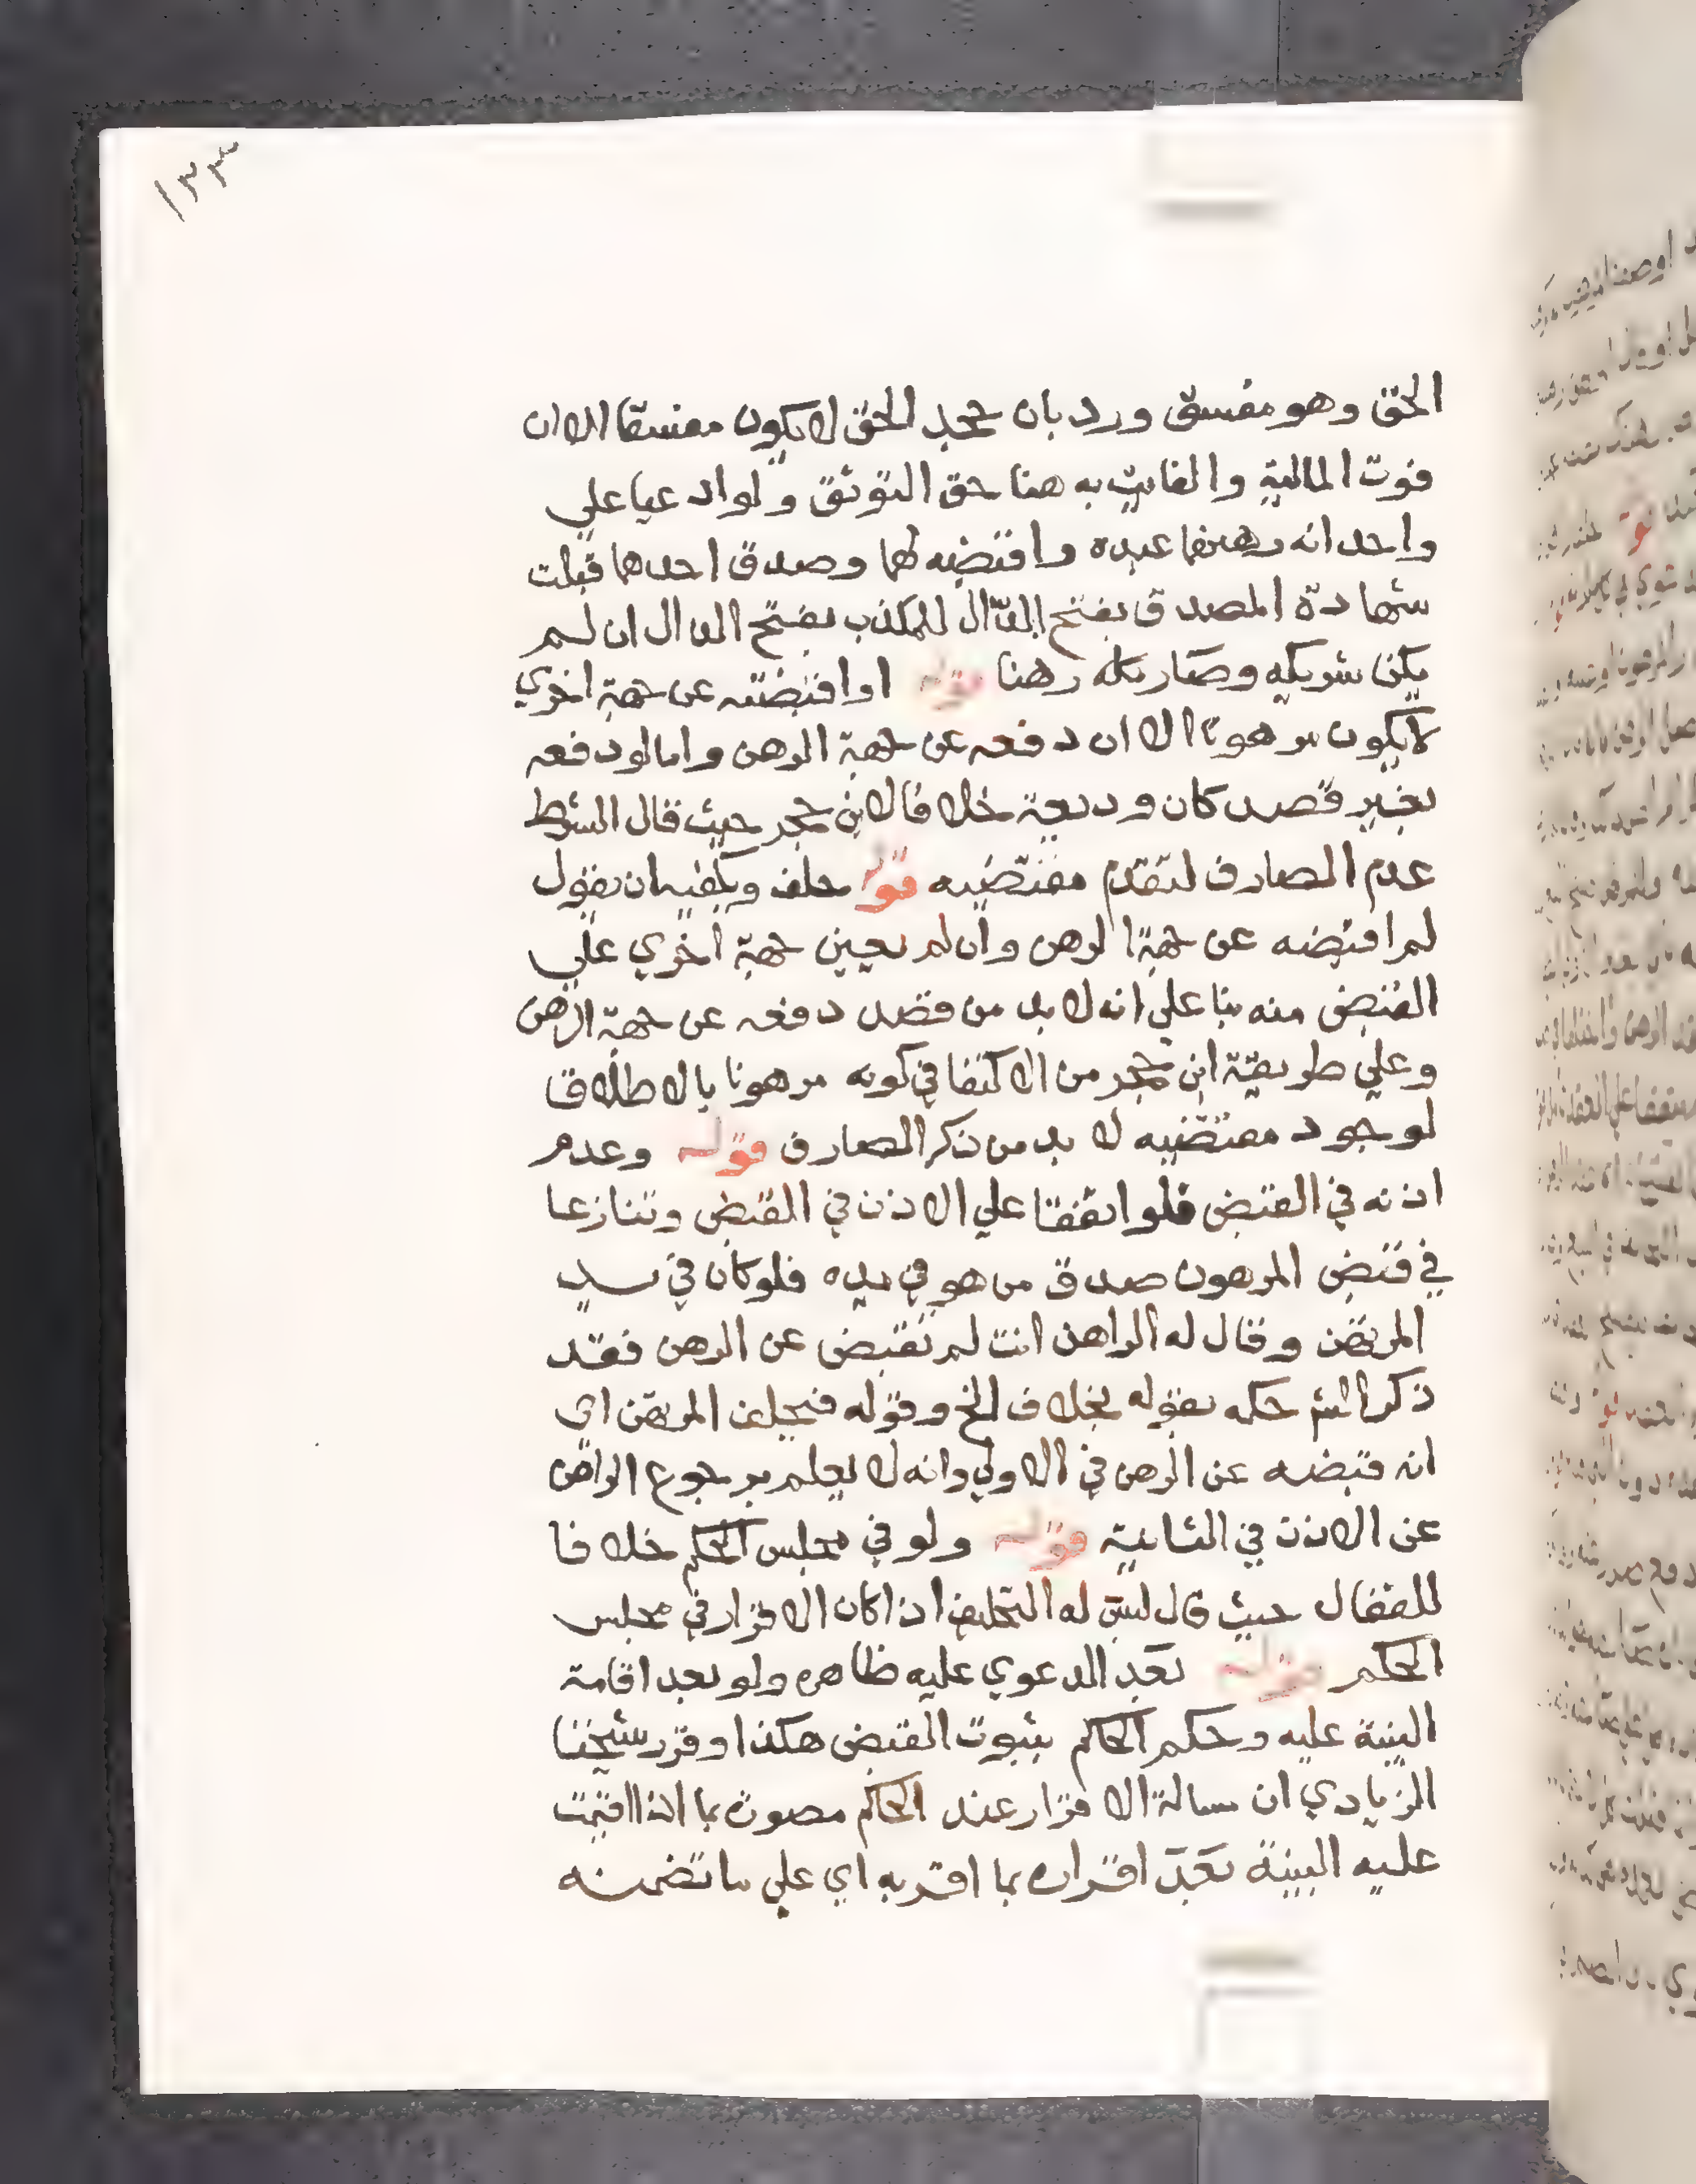 ١٣٣
الحق وهو مفسق ورد بان جحد الحق لا يكون مفسقا الا ان
فوت المالية والفايت به هنا حق التوثق ولو ادعيا علي
واحد انه رهنهما عبده واقبضه لهما وصدق احدهما قبلت
شهادة المصدق بفتح الدال للمكذب بفتح الدال ان لم
يكن شريكه وصار كله رهنا قوله او اقبضته عن جهة اخري
لا يكون مرهونا الا ان دفعه عن جهة الرهن واما لو دفعه
بغير قصد كان وديعة خلافا لابن حجر حيث قال الشرط
عدم الصارف لتقدم مقتضيه قوله حلف ويكفيه ان يقول
لم اقبضه عن جهة الرهن وان لم يعين جهة اخري علي
القبض منه بنا علي انه لا بد من قصد دفعه عن جهة الرهن
وعلي طريقة ابن حجر من الاكتفا في كونه مرهونا بالاطلاق
لوجود مقتضيه لا بد من ذكر الصارف قوله وعدم
اذنه في القبض فلو اتفقا علي الاذن في القبض وتنازعا
في قبض المرهون صدق من هو في يده فلو كان في يد
المرتهن وقال له الراهن انت لم تقبض عن الرهن فقد
ذكر الشم حكمه بقوله بخلاف الخ وقوله فيحلف المرتهن اي
انه قبضه عن الرهن في الاولي وانه لا يعلم برجوع الراهن
عن الاذن في الثانية قوله ولو في مجلس الحكم خلافا
للقفال حيث قال ليس له التحليف اذا كان الاقرار في مجلس
الحكم قوله بعد الدعوي عليه ظاهره ولو بعد اقامة
البينة عليه وحكم الحاكم بثبوت القبض هكذا وقرر شيخنا
الزيادي ان مسالة الاقرار عند الحاكم مصورة بما اذا اقيمت
عليه البينة بعد اقراره بما اقر به اي علي ما تضمنه